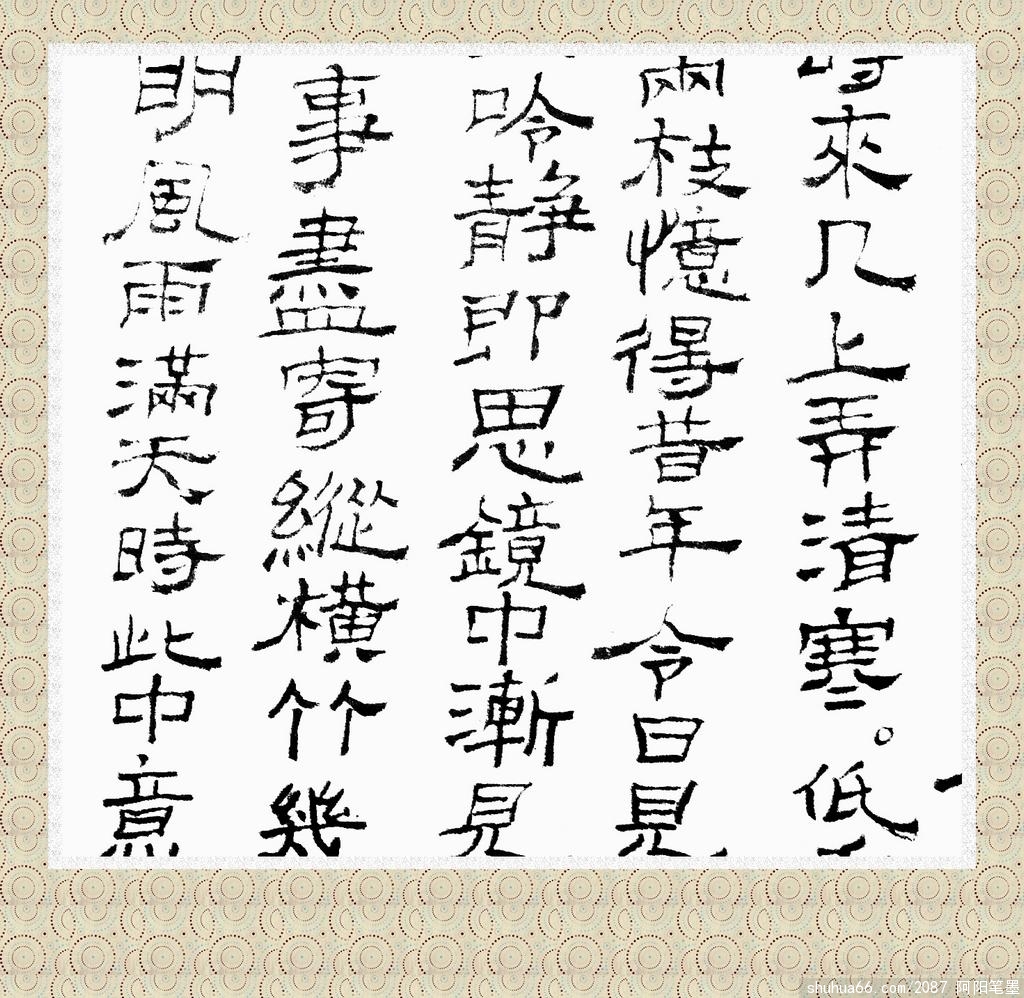 時來几上弄清寒。低
兩枝憶得昔年令日見
吟靜即思鏡中漸見
事盡寄縱橫竹幾
明風雨滿天時此中意
shuhua66.com,2087 阿阳笔墨